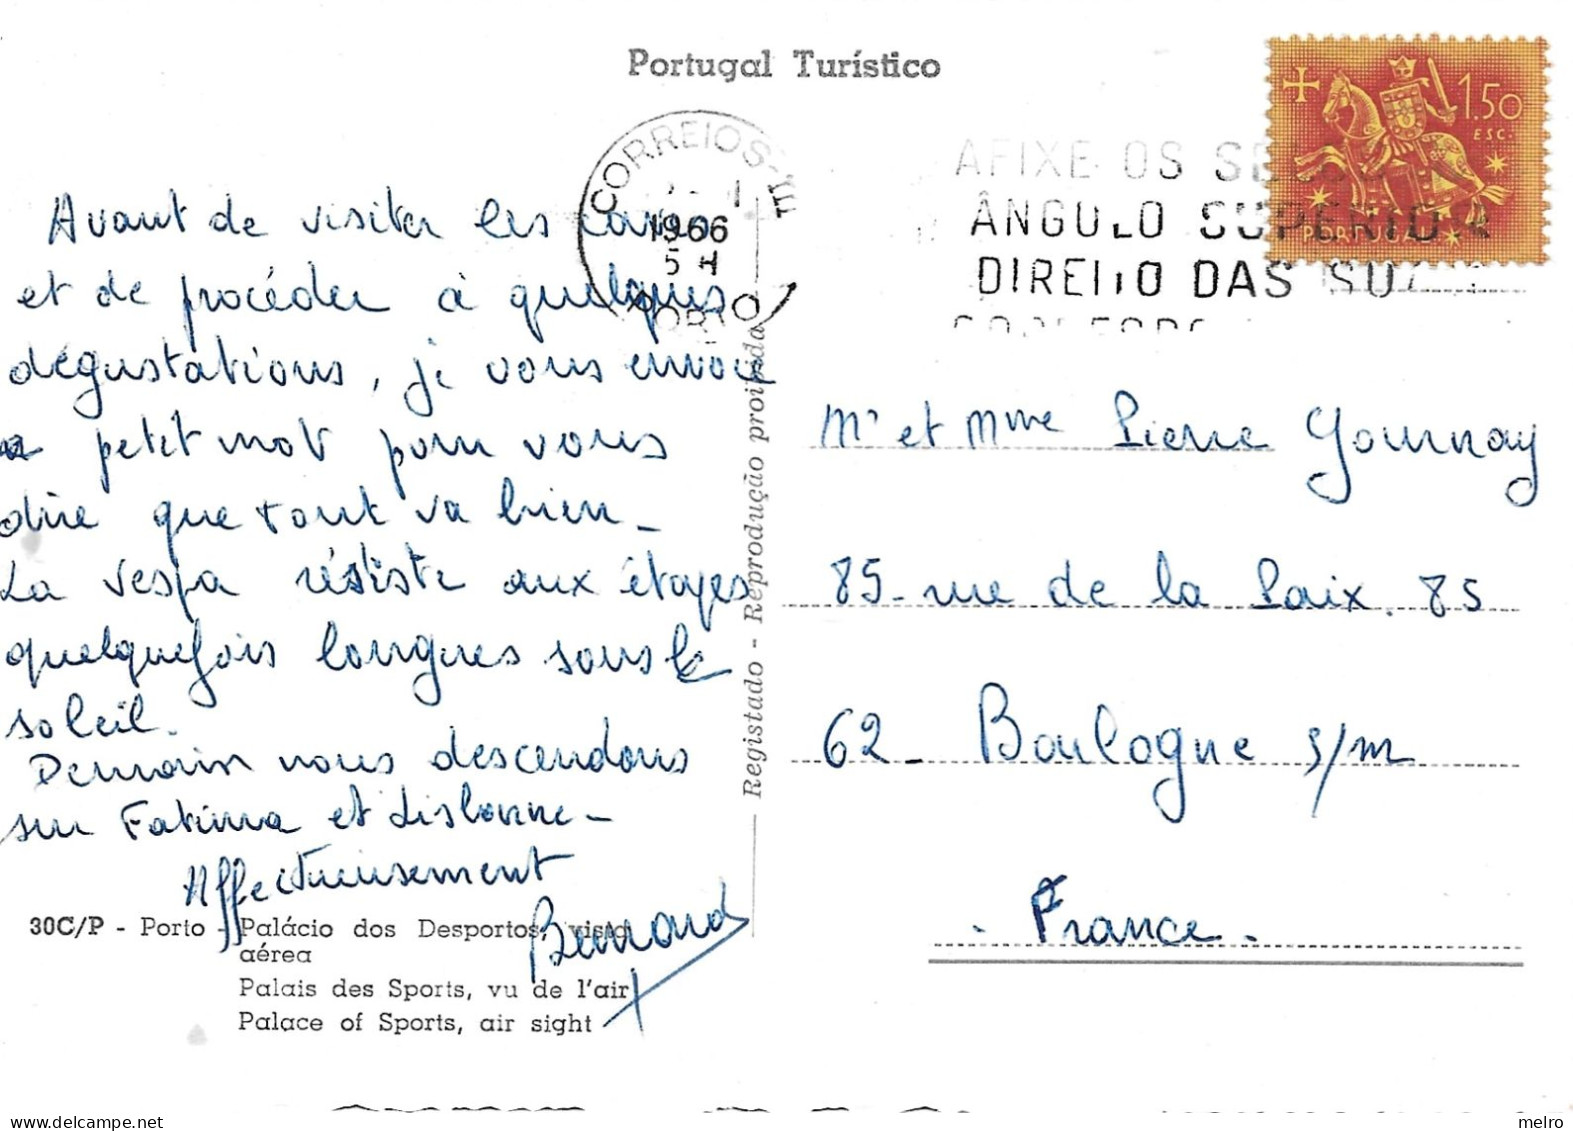 Portugal Turístico
1.50
ESC.
PORTUGAL
CORREIOS-E
1966
5 H
PORTO
AFIXE OS SE
ÂNGULO SUPERIOR
DIREITO DAS SU
Avant de visiter les caves
et de procéder à quelques
dégustations, je vous envoie
un petit mot pour vous
dire que tout va bien_
La vespa résiste aux étapes
quelquefois longues sous le
soleil.
Demain nous descendons
sur Fatima et Lisbonne_
Affectueusement
Bernard
Mr et Mme Pierre Gournay
85_ rue de la Paix. 85
62_ Boulogne s/m
- France -
Registado - Reprodução proibida
30C/P - Porto - Palácio dos Desportos, vista
aérea
Palais des Sports, vu de l'air
Palace of Sports, air sight
melro